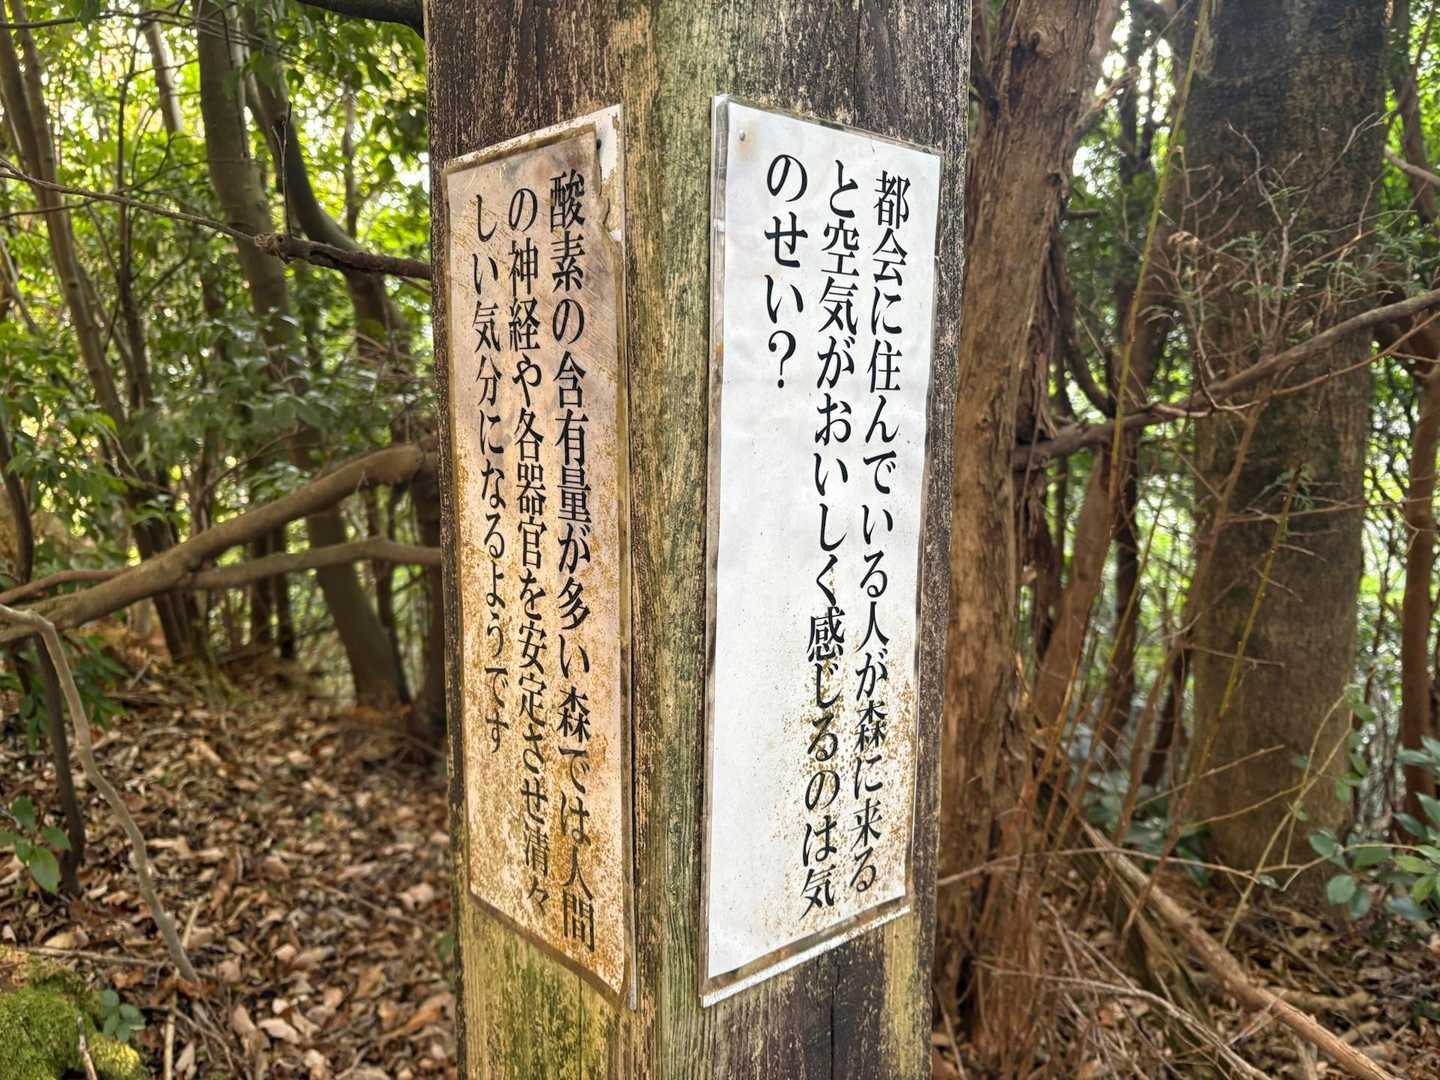 都会に住んでいる人が森に来る
と空気がおいしく感じるのは気
のせい？
酸素の含有量が多い森では人間
の神経や各器官を安定させ清々
しい気分になるようです